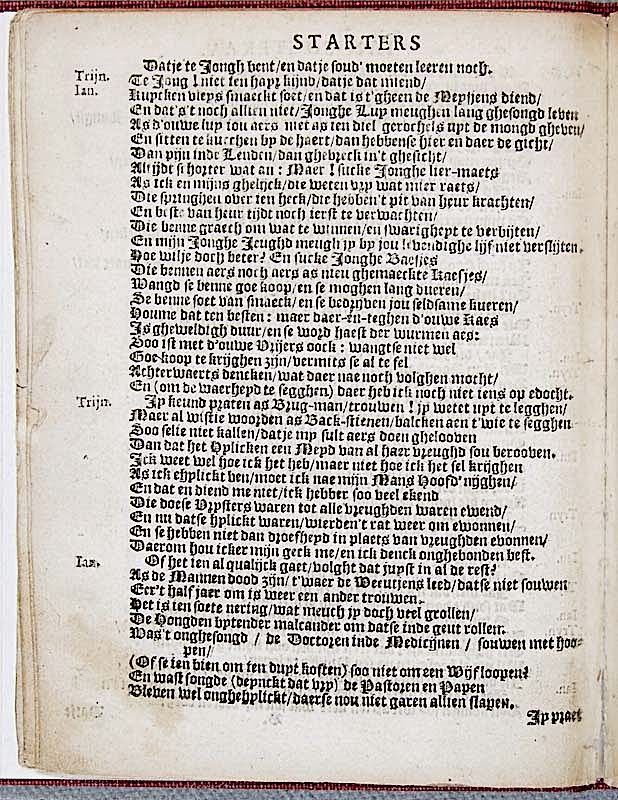 STARTERS
Datje te Jongh bent/en datje soud' moeten leeren noch.
Trijn. Te Jong! niet ien hayr kijnd/datje dat miend/
Ian. Kuycken vleys smaeckt soet/en dat is t'gheen de Meysjens diend/
En dat's't noch allien niet/Jonghe Luy meughen lang ghesongd leven
As d'ouwe luy jou aers niet as ien diel gerochels uyt de mongd gheven/
En sitten te kucchen by de haert/dan hebbense hier en daer de gicht/
Dan pijn inde Lenden/dan ghebreck in't ghesicht/
Altijdt schorter wat an: Maer! sucke Jonghe lier-maets
As ick en mijns ghelijck/die weten vry wat mier raets/
Die springhen over ien heck/die hebben't pit van heur krachten/
En beste van heur tijdt noch ierst te verwachten/
Die benne graech om wat te winnen/en swarigheyt te verbijten/
En mijn Jonghe Jeughd meugh jy by jou levendighe lijf niet verslijten.
Hoe wilje doch beter? En sucke Jonghe Baesjes
Die bennen aers noch aers as nieu ghemaeckte Kaesjes/
Wangd se benne goe koop/en se moghen lang dueren/
Se benne soet van smaeck/en se bedrijven jou seldsame kueren/
Houme dat ten besten: maer daer-en-teghen d'ouwe Kaes
Is gheweldigh duur/en se word haest der wurmen aes:
Soo ist met d'ouwe Vrijers oock: wangtse niet wel
Goe-koop te krijghen zijn/vermits se al te fel
Achterwaerts dencken/wat daer nae noch volghen mocht/
En (om de waerheyd te segghen) daer heb ick noch niet iens op edocht.
Trijn. Jy keund praten as Brug-man/trouwen! jy wetet uyt te legghen/
Maer al wistie woorden as Back-stienen/balcken aen t'wie te segghen
Soo selje niet kallen/datje my sult aers doen ghelooven
Dan dat het Hylicken een Meyd van al haer vreughd sou berooven.
Ick weet wel hoe ick het heb/maer niet hoe ick het sel krijghen
As ick ehylickt ben/moet ick nae mijn Mans Hoofd nijghen/
En dat en diend me niet/ick hebber soo veel ekend
Die doese Vrysters waren tot alle vreughden waren ewend/
En nu datse hylickt waren/wierden't rat weer om ewonnen/
En se hebben niet dan droefheyd in plaets van vreughden evonnen/
Daerom hou icker mijn geck me/en ick denck onghebonden best.
Ian. Of het ien al qualijck gaet/volght dat juyst in al de rest?
As de Mannen dood zijn/t'waer de Weeutjens leed/datse niet souwen
Eer't half jaer om is weer een ander trouwen.
Het is ien soete nering/wat meuch jy doch veel grollen/
De Hongden bytender malcander om datse inde geut rollen.
Was't onghesongd / de Doctoren inde Medicijnen / souwen met hoo-
pen/
(Of se ien bien om ien duyt kosten) soo niet om een Wijf loopen?
En wast songde (deynckt dat vry) de Pastoren en Papen
Bleven wel onghehylickt/daerse nou niet garen allien slapen.
Jy praet